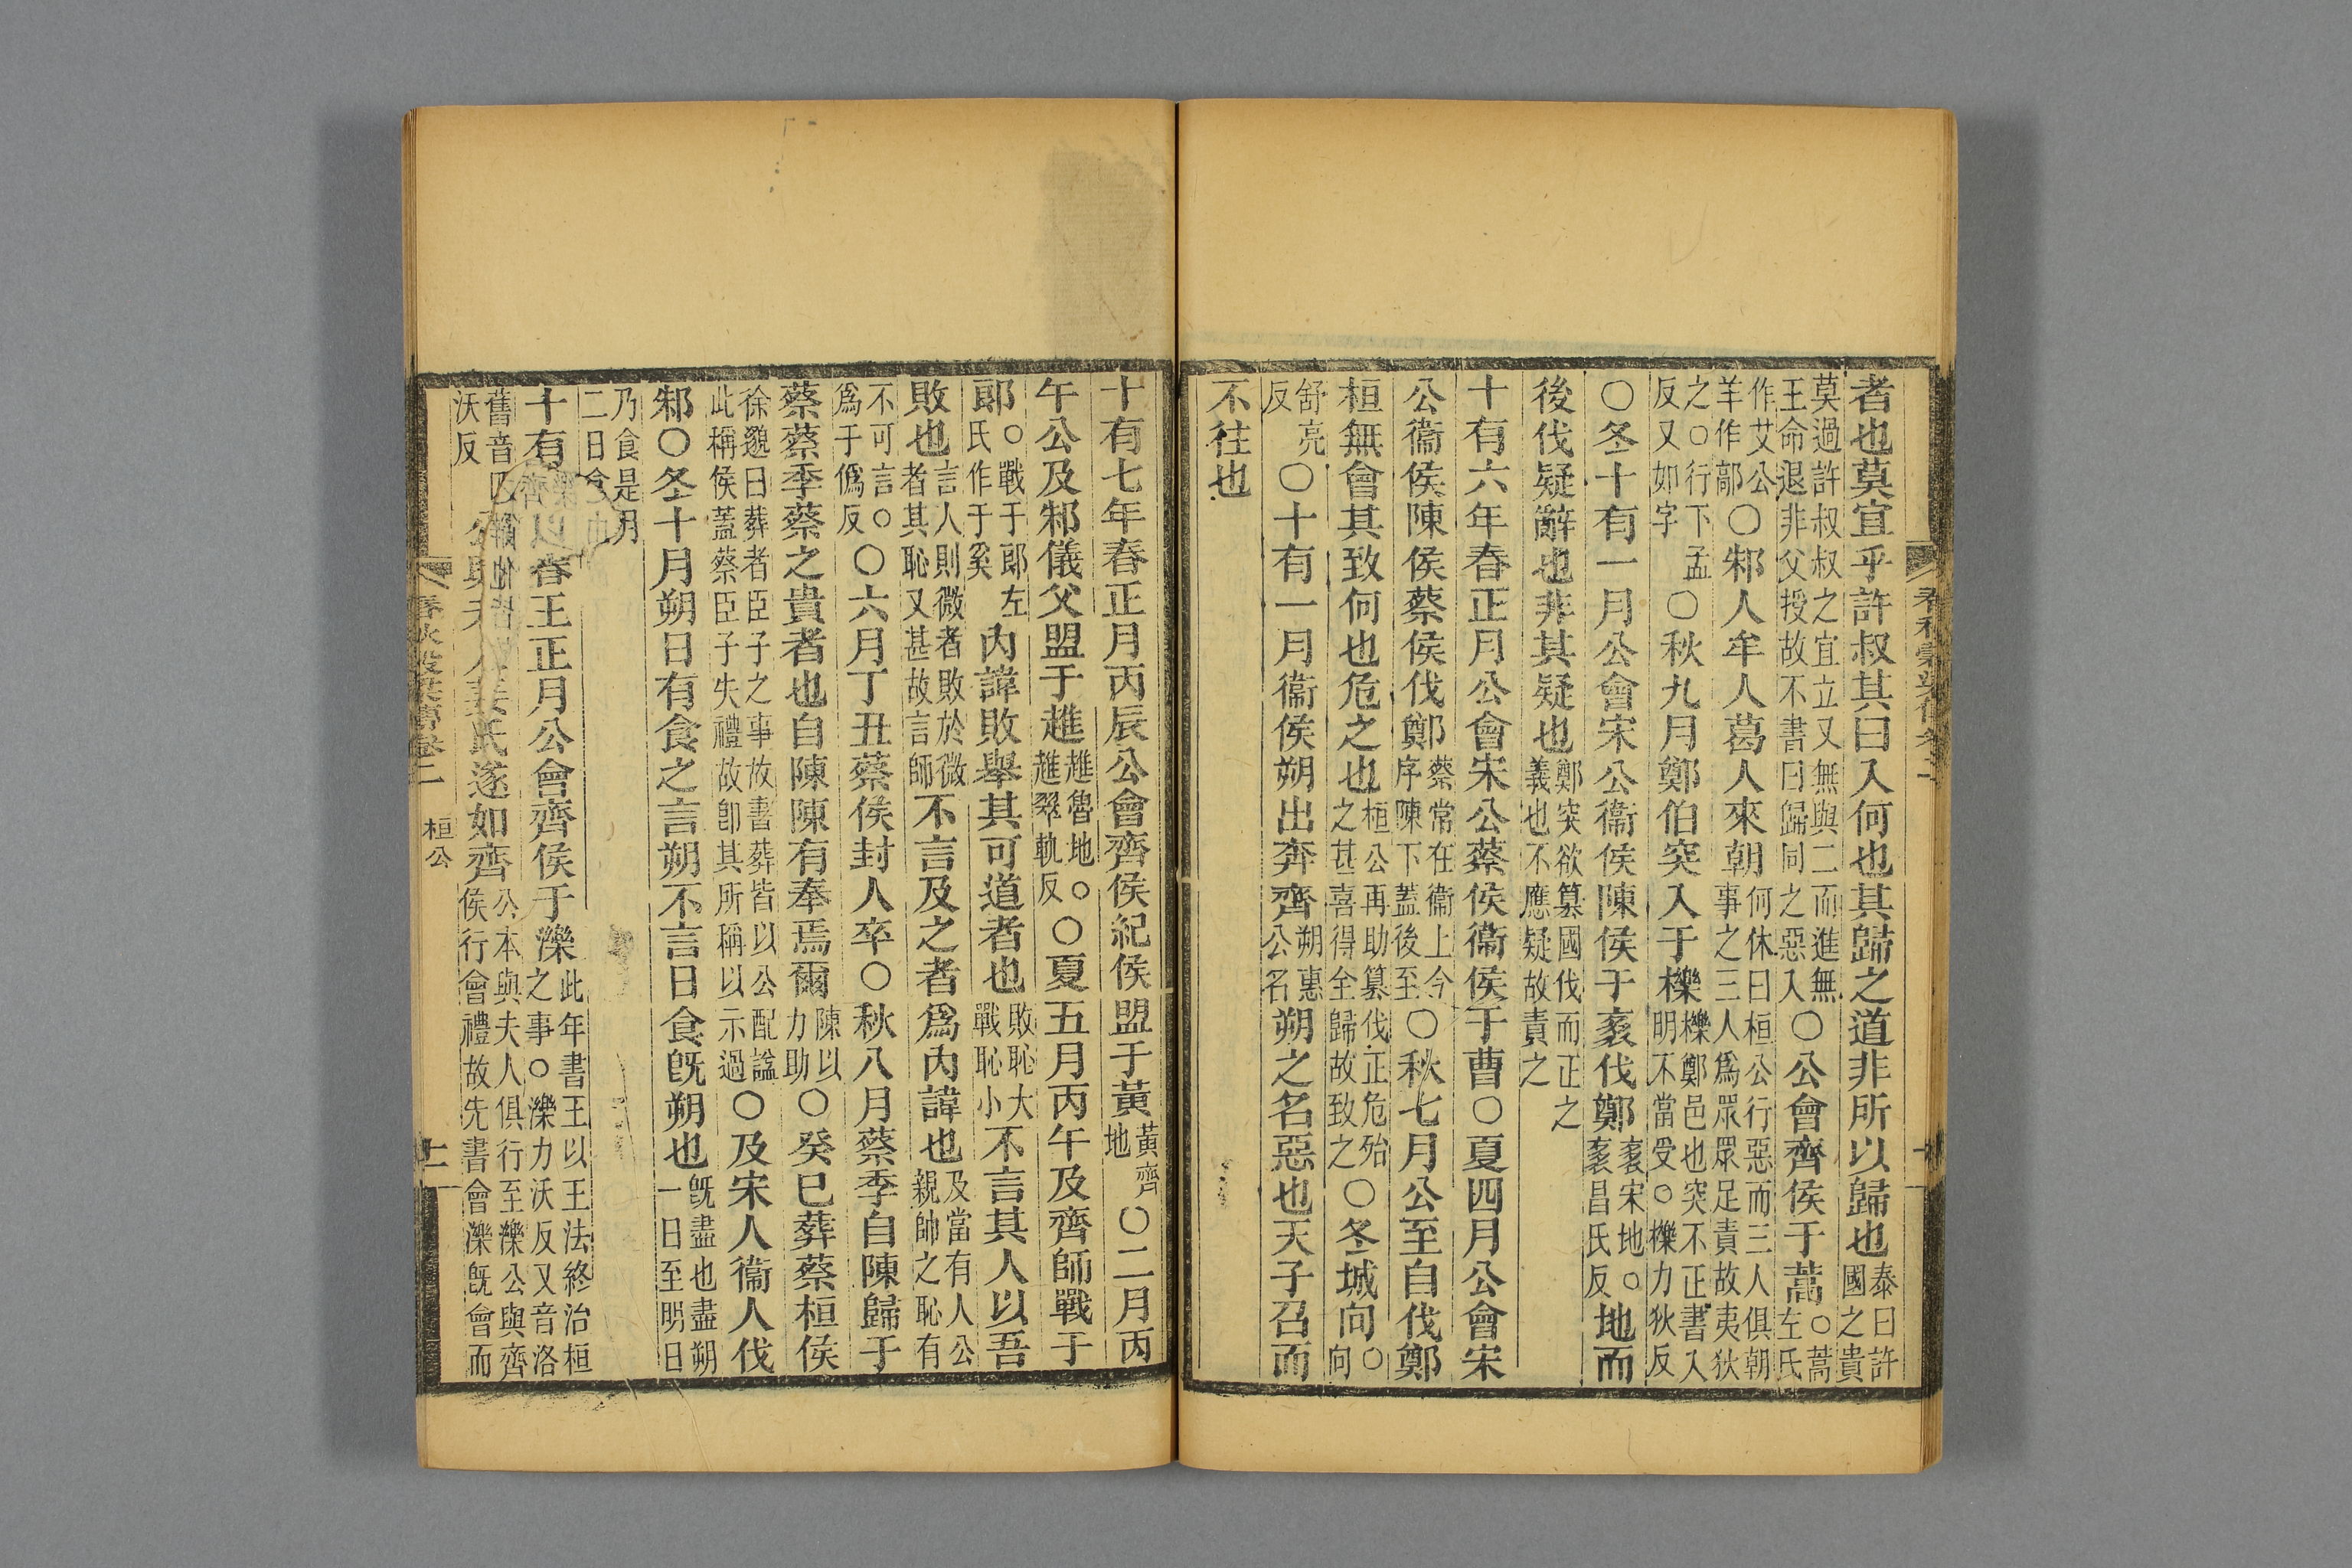 者也莫宜乎許叔其曰入何也其歸之道非所以歸也泰曰許國之貴
莫過許叔叔之宜立又無與二而進無王命退非父授故不書曰歸同之惡入〇公會齊侯于蒿〇蒿左氏
作艾公羊作鄗〇邾人牟人葛人來朝何休曰桓公行惡而三人俱朝事之三人爲眾眾足責故夷狄
之〇行下孟反又如字〇秋九月鄭伯突入于櫟櫟鄭邑也突不正書入明不當受〇櫟力狄反
〇冬十有一月公會宋公衞侯陳侯于袲伐鄭袲宋地〇袲昌氏反地而
後伐疑辭也非其疑也鄭突欲篡國伐而正之義也不應疑故責之
十有六年春正月公會宋公蔡侯衞侯于曹〇夏四月公會宋
公衞侯陳侯蔡侯伐鄭蔡常在衞上今序陳下蓋後至〇秋七月公至自伐鄭
桓無會其致何也危之也桓公再助篡伐正危殆之甚喜得全歸故致之〇冬城向〇向
舒亮反〇十有一月衞侯朔出奔齊朔惠公名朔之名惡也天子召而
不往也
春秋穀梁傳卷二
十有七年春正月丙辰公會齊侯紀侯盟于黃黃齊地〇二月丙
午公及邾儀父盟于趡趡魯地〇趡翠軌反〇夏五月丙午及齊師戰于
郎〇戰于郎左氏作于奚內諱敗舉其可道者也敗恥大戰恥小不言其人以吾
敗也言人則微者敗於微者其恥又甚故言師不言及之者爲內諱也及當有人公親帥之恥有
不可言〇爲于僞反〇六月丁丑蔡侯封人卒〇秋八月蔡季自陳歸于
蔡蔡季蔡之貴者也自陳陳有奉焉爾陳以力助〇癸巳葬蔡桓侯
徐邈曰葬者臣子之事故書葬皆以公配謚此稱侯蓋蔡臣子失禮故卽其所稱以示過〇及宋人衞人伐
邾〇冬十月朔日有食之言朔不言日食旣朔也旣盡也盡朔一日至明日
乃食是月二日食
十有春王正月公會齊侯于濼此年書王以王法終治桓之事〇濼力沃反又音洛
舊音沃反人姜氏遂如齊公本與夫人俱行至濼公與齊侯行會禮故先書會濼旣會而
春秋穀梁傳卷二
桓公